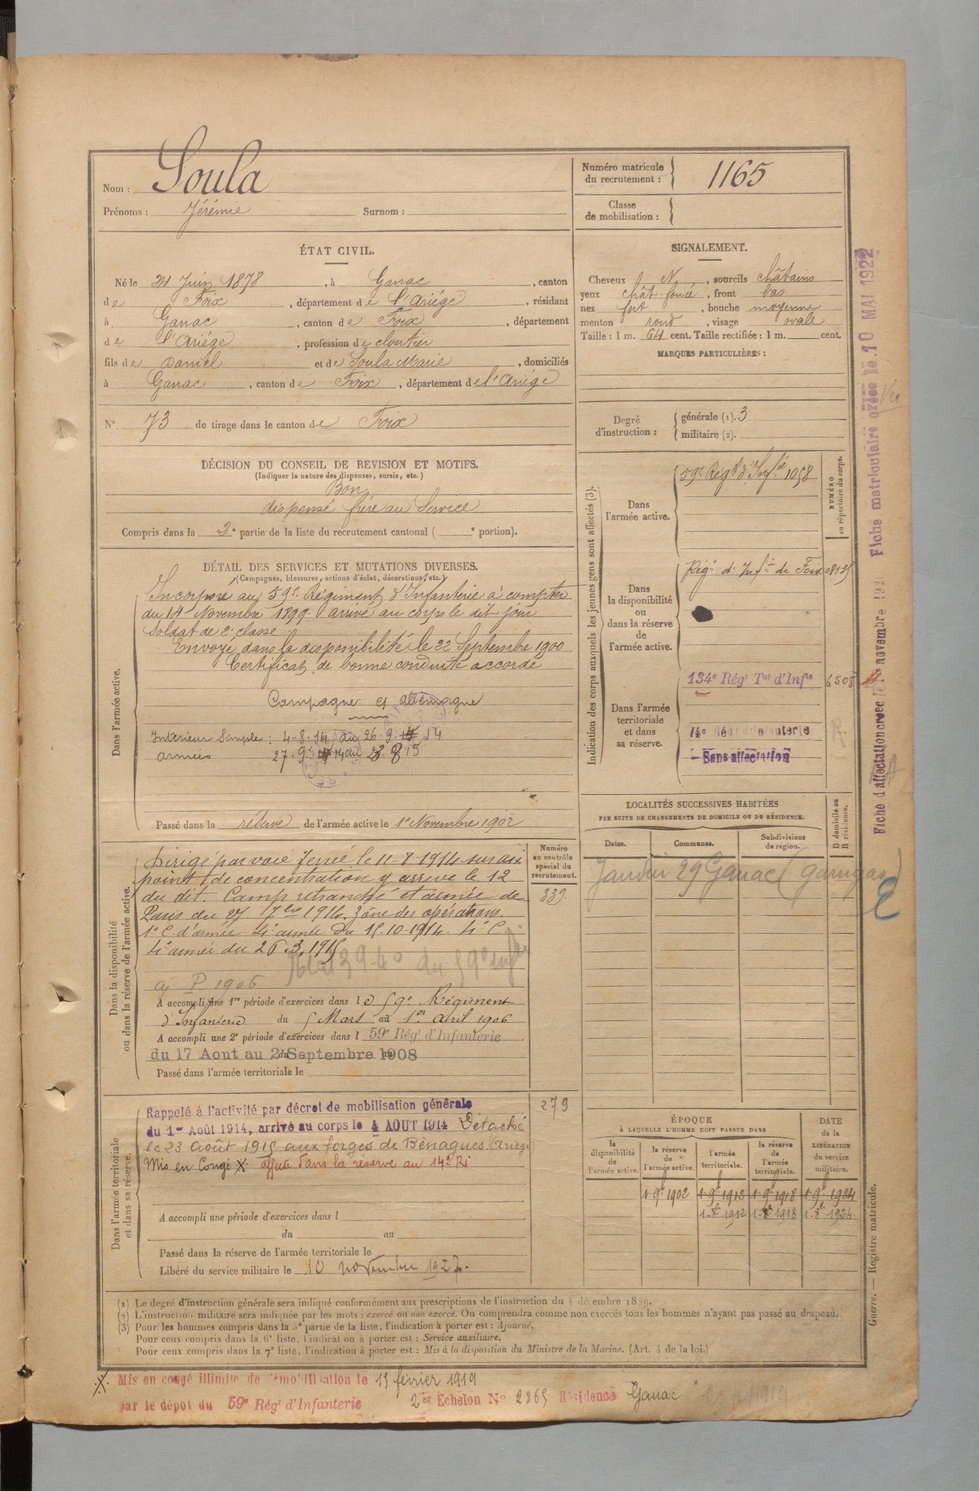 Nom : Soula
Prénoms : Jérémie Surnom :
Numéro matricule du recrutement : 1165
Classe de mobilisation :
ÉTAT CIVIL.
Né le Juin 1878, à Ganac, canton
de Foix, département de l'Ariége, résidant
à Ganac, canton de Foix, département
de l'Ariége, profession de cloutier
fils de Daniel et de Soula Marie, domiciliés
à Ganac, canton de Foix, département de l'Ariége
N° 73 de tirage dans le canton de Foix
SIGNALEMENT.
Cheveux N, sourcils châtains
yeux chât foncé, front bas
nez fort, bouche moyenne
menton rond, visage ovale
Taille : 1 m. 64 cent. Taille rectifiée : 1 m. cent.
MARQUES PARTICULIÈRES :
Degré d'instruction : générale (1). 3
militaire (2).
DÉCISION DU CONSEIL DE REVISION ET MOTIFS.
(Indiquer la nature des dispenses, sursis, etc.)
Bon
dispensé frère au Service
Compris dans la 2e partie de la liste du recrutement cantonal ( e portion).
DÉTAIL DES SERVICES ET MUTATIONS DIVERSES.
(Campagnes, blessures, actions d'éclat, décorations, etc.)
Dans l'armée active.
Incorporé au 59e Régiment d'Infanterie à compter
du 14 Novembre 1899 arrivé au corps le dit jour
Soldat de 2e classe
Envoyé dans la disponibilité le 22 Septembre 1900
Certificat de bonne conduite accordé
Campagne Allemagne
Intérieur Simple : 4-8-14 au 26-9-14
armées 27-9-14 au 23 8 15
Passé dans la réserve de l'armée active le 1er Novembre 1902
Dans la disponibilité ou dans la réserve de l'armée active.
Dirigé par voie ferrée le 11-8-1914 sur un
point de concentration y arrive le 12
du dit. Camp retranché et armée de
Paris du 27 7bre 1914. Zone des opérations
1er C. d'armée 4e armée du 15.10.1914.
4e armée du 26.3.1915
a P 1906
A accompli une 1re période d'exercices dans le 59e Régiment
d'Infanterie du 5 Mars au 1er Avril 1906
A accompli une 2e période d'exercices dans l 59e Rég^t d'Infanterie
du 17 Aout au Septembre 1908
Passé dans l'armée territoriale le
Numéro au contrôle spécial du recrutement.
339
279
Dans l'armée territoriale et dans sa réserve.
Rappelé à l'activité par décret de mobilisation générale
du 1er Août 1914, arrivé au corps le 4 AOUT 1914 Détaché
le 23 août 1915 aux forges de Bénagues (Ariège)
Mis en Congé X affecté dans la réserve au 14e Ri
A accompli une période d'exercices dans l
du au
Passé dans la réserve de l'armée territoriale le
Libéré du service militaire le 10 novembre 1927.
Indication des corps auxquels les jeunes gens sont affectés (3).
NUMÉRO au répertoire du corps.
Dans l'armée active.
59e Rég^t d'Inf^ie 1058
Dans la disponibilité ou dans la réserve de l'armée active.
Rég^t d'Inf^ie de Foix
134e Rég^t T^al d'Inf^ie 6508
Dans l'armée territoriale et dans sa réserve.
14e Régt d'Infanterie
- Sans affectation
LOCALITÉS SUCCESSIVES HABITÉES
PAR SUITE DE CHANGEMENTS DE DOMICILE OU DE RÉSIDENCE.
Dates. Communes. Subdivisions de région. D domicile ou R résidence.
Janvier 29 Ganac
ÉPOQUE
À LAQUELLE L'HOMME DOIT PASSER DANS
la disponibilité de l'armée active. la réserve de l'armée active. l'armée territoriale. la réserve de l'armée territoriale. DATE de la LIBÉRATION du service militaire.
1 9e 1902 1 9e 1912 1 9e 1918 1 9e 1924
1912 1918 1924
Fiche d'affectation créée le novembre Fiche matriculaire créée le 10 MAI 1922
Guerre. — Registre matricule.
(1) Le degré d'instruction générale sera indiqué conformément aux prescriptions de l'instruction du 4 décembre 1889.
(2) L'instruction militaire sera indiquée par les mots : exercé ou non exercé. On comprendra comme non exercés tous les hommes n'ayant pas passé au drapeau.
(3) Pour les hommes compris dans la 5e partie de la liste, l'indication à porter est : Ajourné.
Pour ceux compris dans la 6e liste, l'indication à porter est : Service auxiliaire.
Pour ceux compris dans la 7e liste, l'indication à porter est : Mis à la disposition du Ministre de la Marine. (Art. 4 de la loi.)
X. Mis en congé illimité de démobilisation le 15 février 1919
par le dépôt du 59e Rég^t d'Infanterie 2er Echelon N° 2365 Résidence Ganac